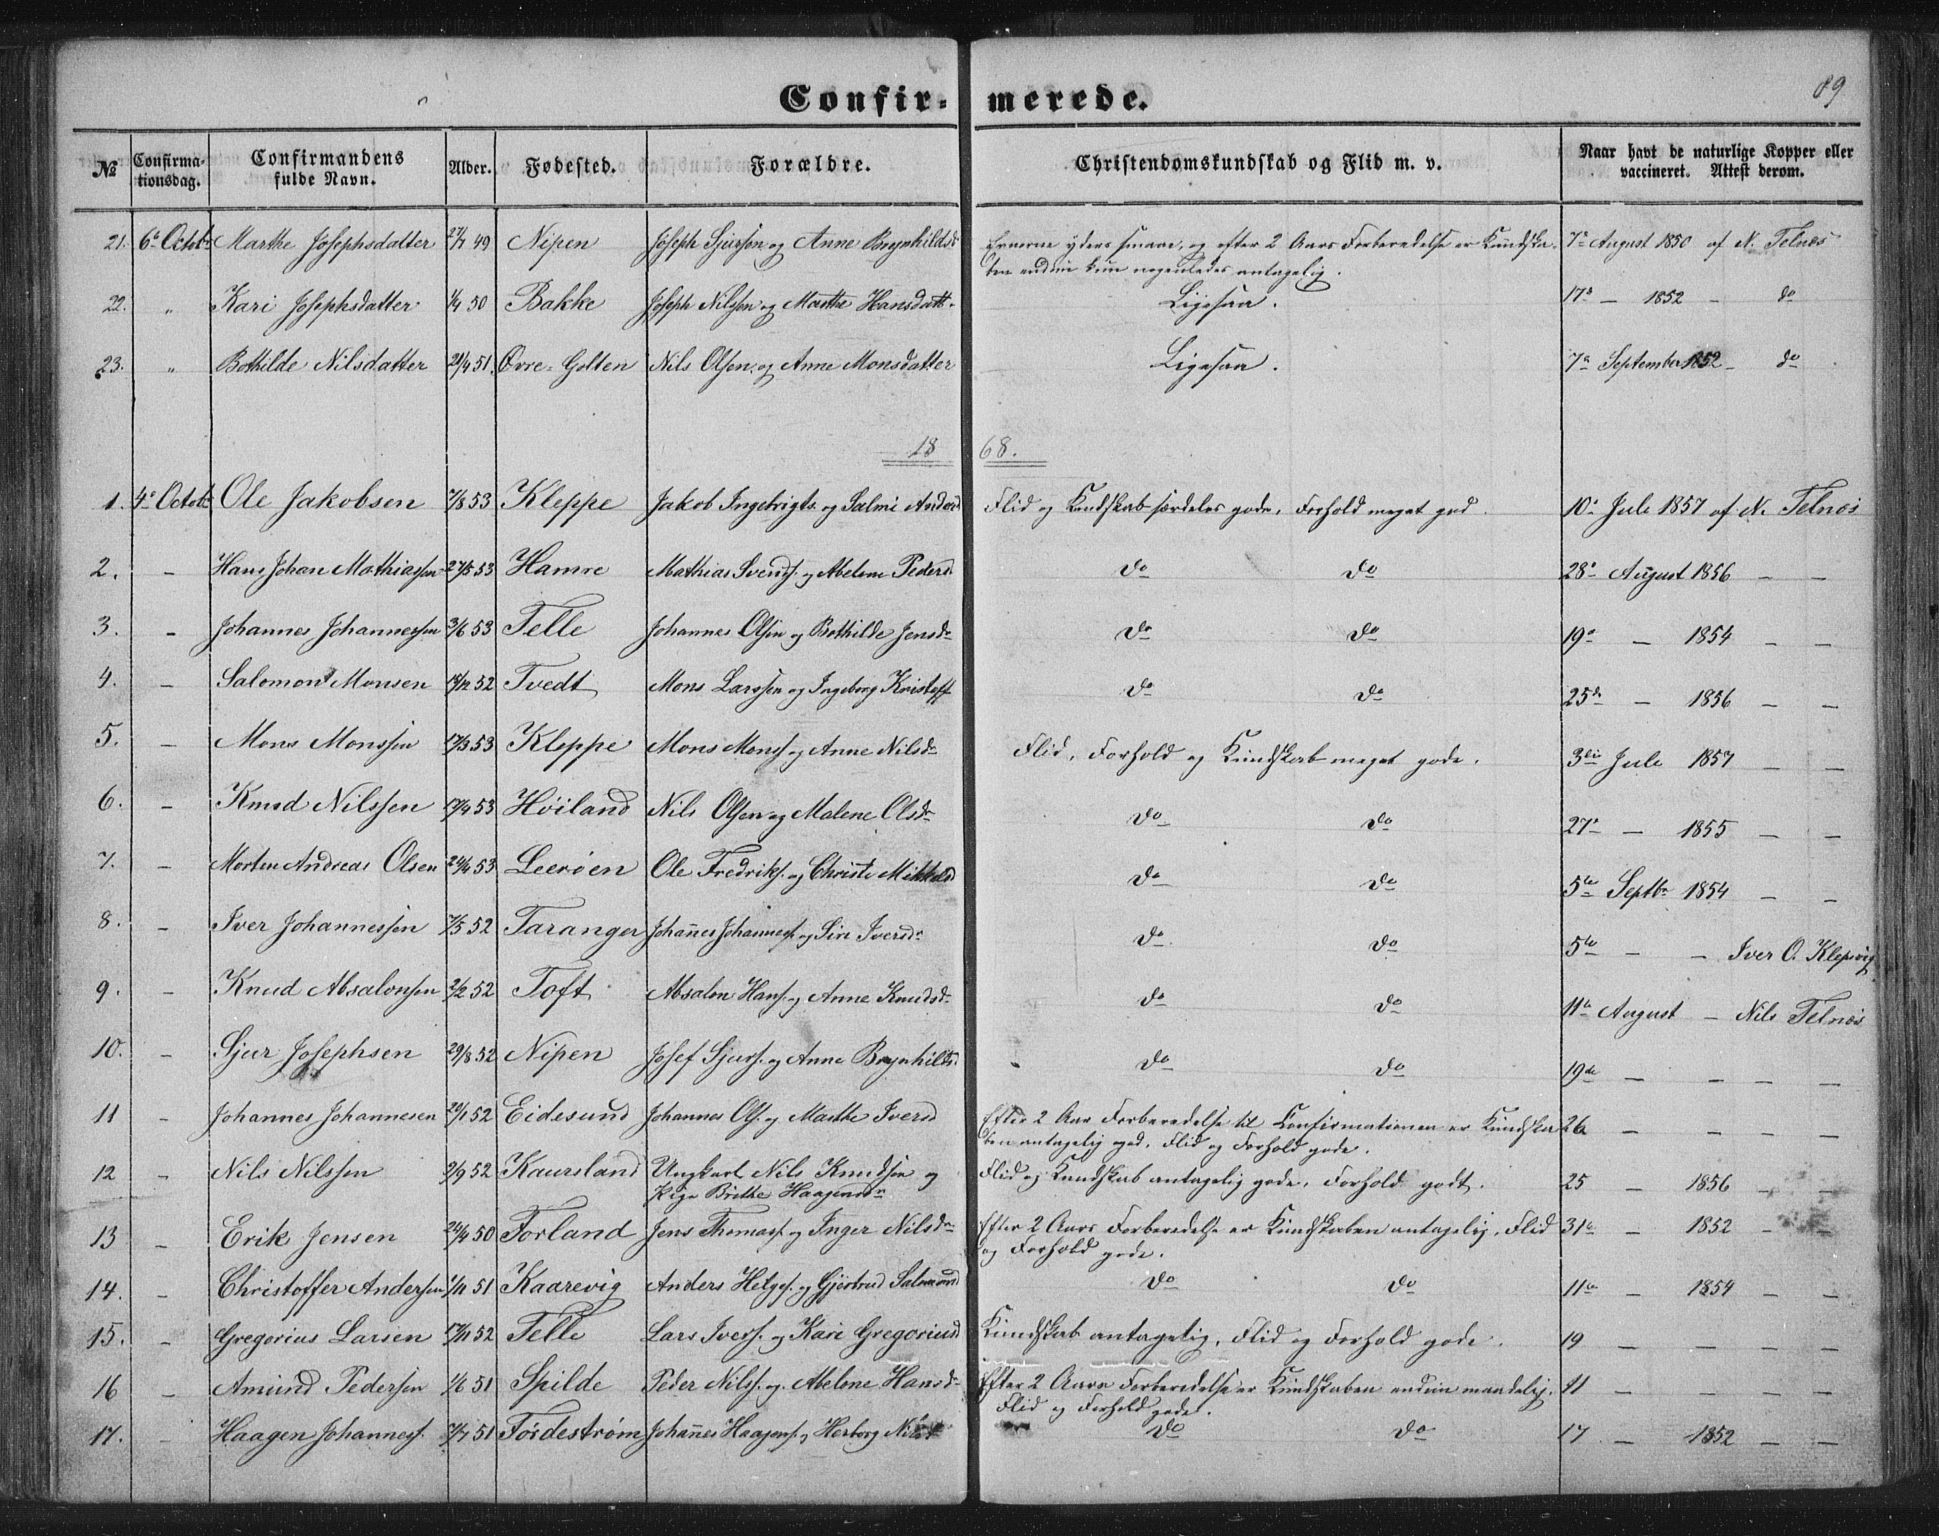 Confir- merede. 89
№ Confirma-tionsdag. Confirmandens fulde Navn. Alder. Fødested. Forældre. Christendomskundskab og Flid m. v. Naar havt de naturlige Kopper eller vaccineret. Attest derom.
21. 6te Octob. Marthe Josephsdatter 27/7 49 Nipen Joseph Sjursson og Anne Brynhildsd Evnerne yderst smaae, og efter 2 Aars Forberedelse er Kundska- 7de August 1850 af N. Telnæs
ben endnu kun nogenledes antagelig.
22. " Kari Josephsdatter 50 Bakke Joseph Nilssen og Marthe Hansdatt. Ligesaa. 17de — 1852 — do
23. " Bothilde Nilsdatter 21/4 51. Øvre-Golten Nils Olsen og Anne Monsdatter Ligesaa. 7de September 1852 — do
18 68.
1. 4de Octob. Ole Jakobsen 7/8 53 Kleppe Jakob Ingebrigts. og Salmi Andersd Flid og Kundskab særdeles gode, Forhold meget god. 10de Juli 1857 af N. Telnæs
2. — Hans Johan Mathiassen 27/5 53 Hamre Mathias Svends. og Abelone Pedersd. do do 28de August 1856 — —
3. — Johannes Johannessen 3/6 53 Telle Johannes Olsen og Bothilde Jensdr do do 19de — 1854 — —
4. — Salomon Monsen 18/12 52 Tvedt Mons Larssen og Ingeborg Kristoff. do do 25de — 1856 — —
5. — Mons Monssen 17/3 53 Kleppe Mons Mons. og Anne Nilsdr Flid, Forhold og Kundskab meget gode. 3die Juli 1857 — —
6. — Knud Nilssen 17/4 53 Høiland Nils Olsen og Malene Olsdr do do 27de — 1855 — —
7. — Morten Andreas Olsen 24/6 53 Leerøen Ole Fredriks. og Christi Mikkelsd do do 5te Septbr 1854 — —
8. — Iver Johannessen 7/5 52 Taranger Johañes Johannes. og Siri Iversdr do do 5te — — Iver O. Klepsvig
9. — Knud Absalonsen 2/2 52 Toft Absalon Hans. og Anne Knudsdr do do 11te August — Nils Telnæs
10. — Sjur Josephsen 29/8 52 Nipen Josef Sjurs. og Anne Brynhildsd do do 19de — — — —
11 — Johannes Johannesen 20/1 52 Eidesund Johannes Ols. og Marthe Iversd Efter 2 Aars Forberedelse til Confirmationen er Kundska- 26 — — — —
ben antagelig god, Flid og Forhold gode.
12 — Nils Nilssen 9/9 52 Kaursland Ungkarl Nils Knudsen og Flid og Kundskab antagelig gode, Forhold godt. 25 — 1856 — —
Pige Brithe Haagensdr
13 — Erik Jensen 24/4 50 Forland Jens Thomas. og Inger Nilsdr Efter 2 Aars Forberedelse er Kundskaben antagelig, Flid 31te — 1852 — —
og Forhold gode.
14. — Christoffer Anderssen 1/11 51 Kaarevig Anders Helges. og Gjertrud Salomonsd do do 11te — 1854 — —
15. — Gregorius Larsen 17/11 52 Telle Lars Ivers. og Kari Gregoriusd Kundskab antagelig, Flid og Forhold gode. 19 — — — —
16 — Amund Pedersen 1/6 51 Spilde Peder Nils. og Abelone Hansd Efter 2 Aars Forberedelse er Kundskaben endnu maadelig. 11 — — — —
Flid og Forhold gode.
17. — Haagen Johannes. 7/7 51 Førdestrøm Johañes Haagens. og Herborg do do 17 — 1852 — —